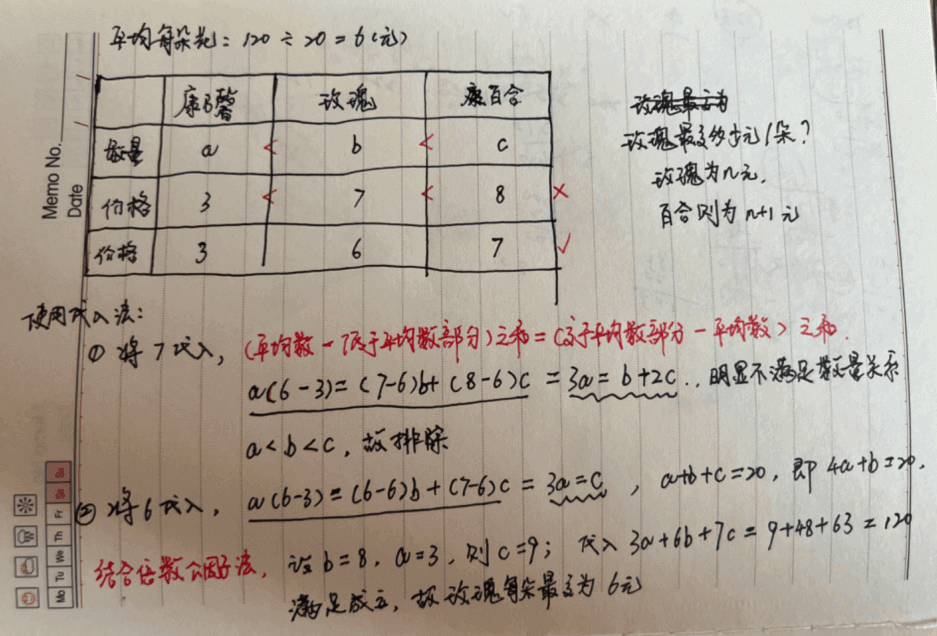 平均每朵花：120÷20=6(元)
康乃馨 玫瑰 康百合
数量 a < b < c
价格 3 < 7 < 8 ×
价格 3 6 7 √
玫瑰最高为
玫瑰最多多少元1朵？
玫瑰为n元,
百合则为n+1元
Memo No.
Date
使用代入法：
① 将7代入, (平均数-低于平均数部分)之和=(高于平均数部分-平均数)之和.
a(6-3)=(7-6)b+(8-6)c = 3a=b+2c, 明显不满足数量关系
a<b<c, 故排除
② 将6代入, a(6-3)=(6-6)b+(7-6)c = 3a=c, a+b+c=20, 即4a+b=20,
结合倍数公因子法, 设b=8, a=3, 则c=9; 代入3a+6b+7c=9+48+63=120
满足成立, 故玫瑰每朵最高为6元
Mo Tu We Th Fr Sa Su